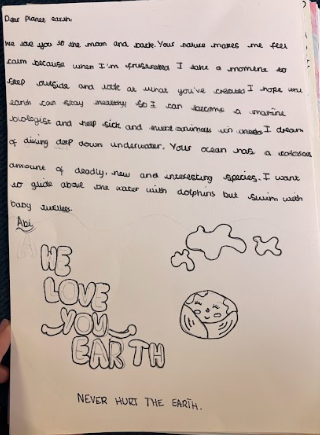 Dear Planet earth
We love you to the moon and back. Your nature makes me feel
calm because when I'm frustrated I take a moment to
step outside and look at what you've created I hope our
earth can stay healthy so I can become a marine
biologist and help sick and hurt animals in need. I dream
of diving deep down underwater. Your ocean has a colossal
amount of deadly, new and interesting species. I want
to glide above the water with dolphins but swim with
baby turtles.
Abi
WE
LOVE
YOU
EARTH
NEVER HURT THE EARTH.